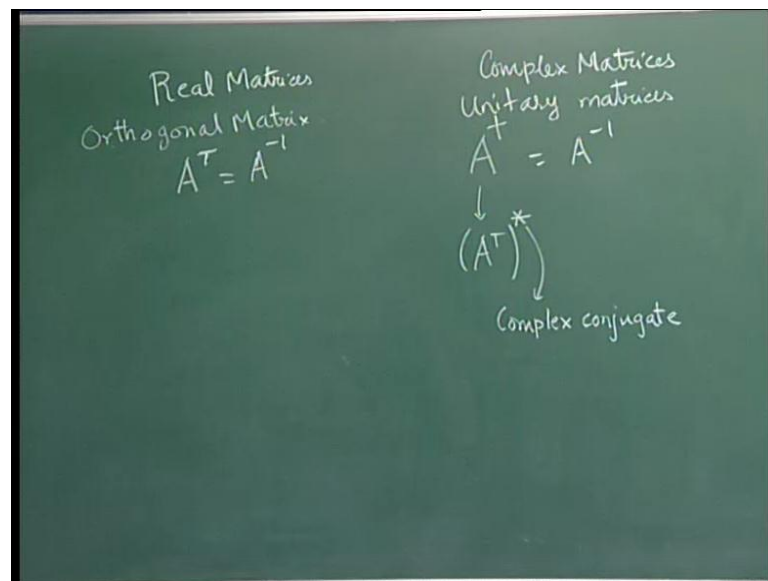 Real Matrices
Orthogonal Matrix
Aᵀ = A⁻¹
Complex Matrices
Unitary matrices
A† = A⁻¹
↓
(Aᵀ)*
Complex conjugate